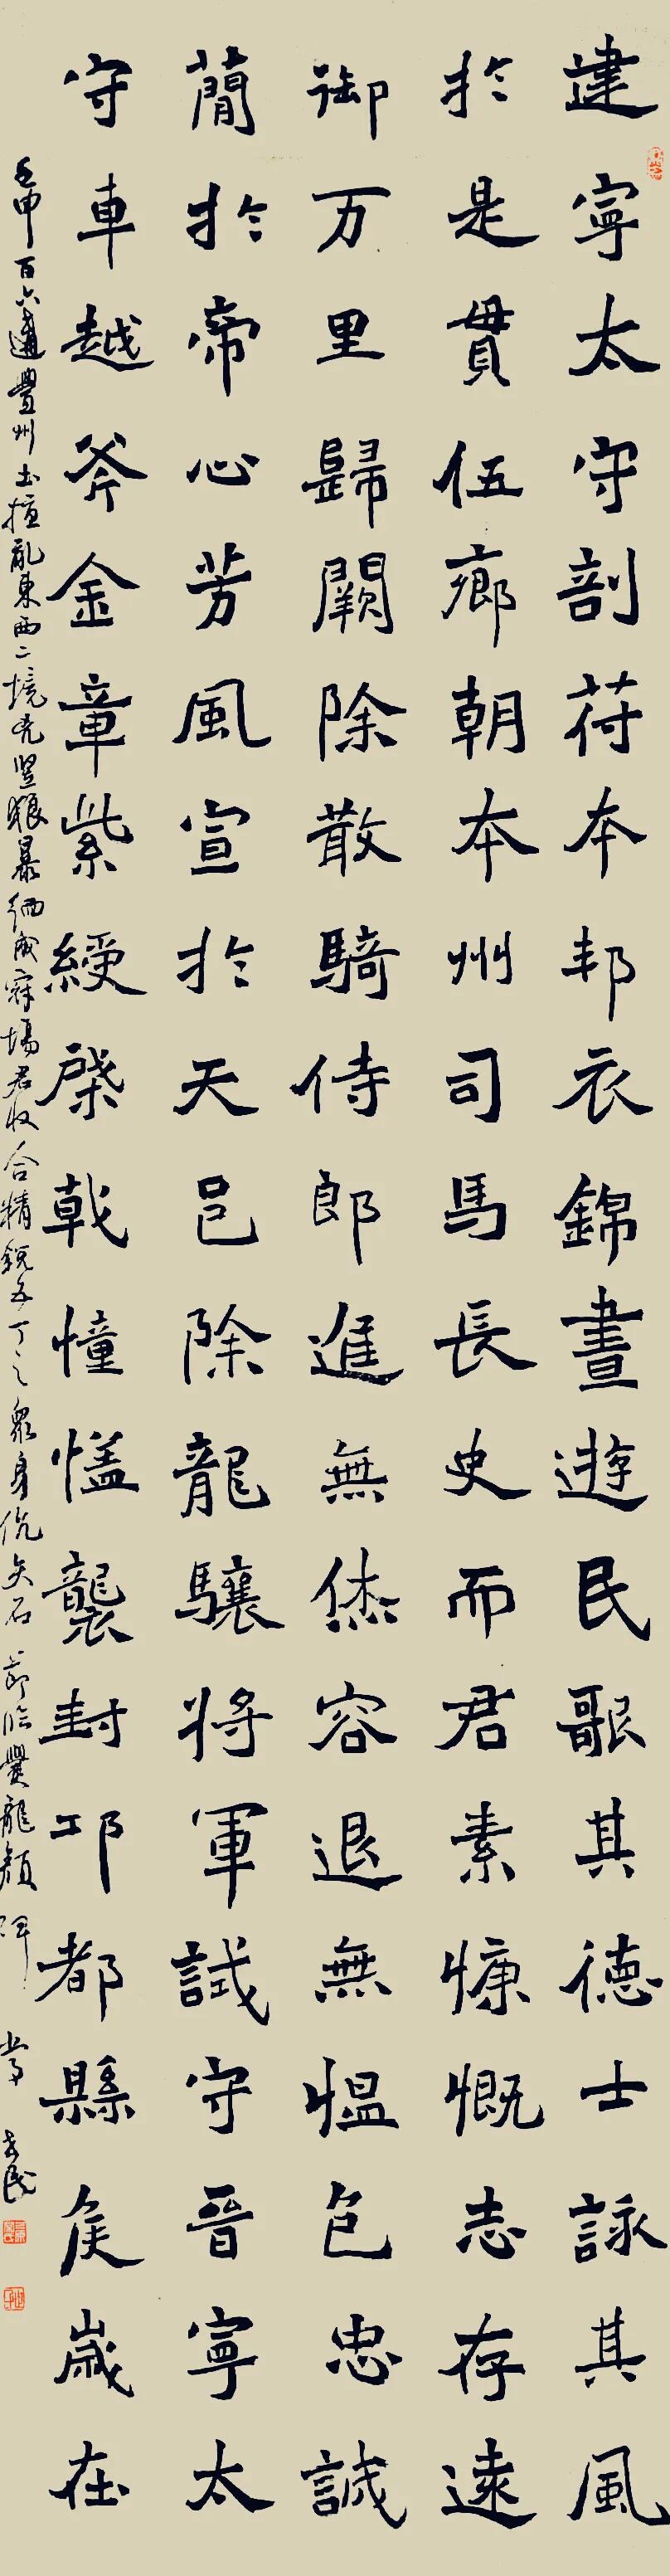 建寧太守剖苻本邦衣錦晝遊民歌其德士詠其風
於是貫伍鄉朝本州司馬長史而君素慷慨志存遠
御万里歸闕除散騎侍郎進無烋容退無愠色忠誠
蕳於帝心芳風宣於天邑除龍驤將軍試守晉寧太
守車越斧金章紫綬棨戟憧襲封邛都縣侯歲在
壬申百六遘豐州土擾亂東西二境凶豎狼暴緬成寇場君收合精銳五丁之衆身伉矢石 節臨爨龍顏碑